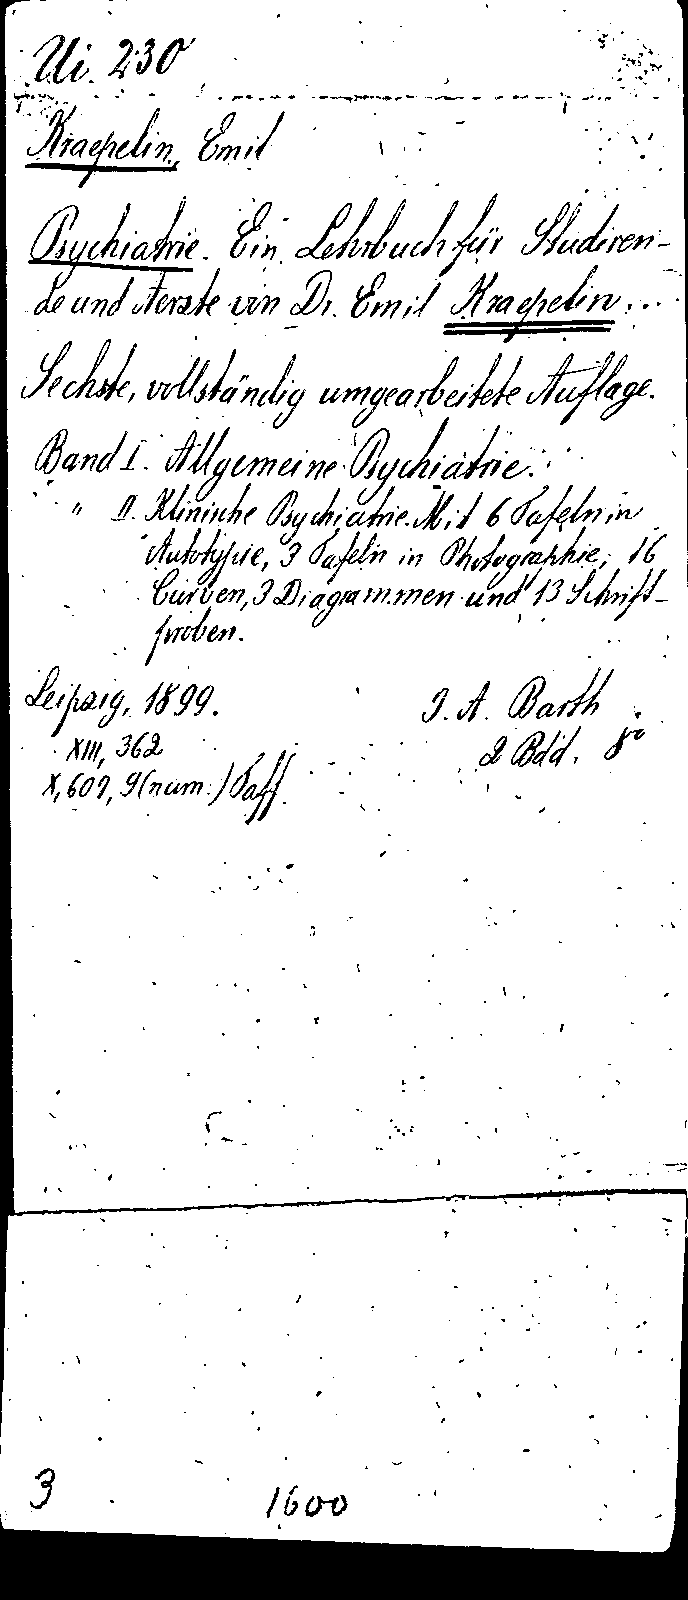 Ui. 230
Kraepelin, Emil
Psychiatrie. Ein Lehrbuch für Studiren-
de und Aerzte von Dr. Emil Kraepelin...
Sechste, vollständig umgearbeitete Auflage.
Band I. Allgemeine Psychiatrie.
" II. Klinische Psychiatrie. Mit 6 Tafeln in
Autotypie, 3 Tafeln in Photographie, 16
Curven, 3 Diagrammen und 13 Schrift-
proben.
Leipzig, 1899. J. A. Barth
XIII, 362 2 Bdd. 8°
X, 607, 9 (num.) Taff.
3 1600